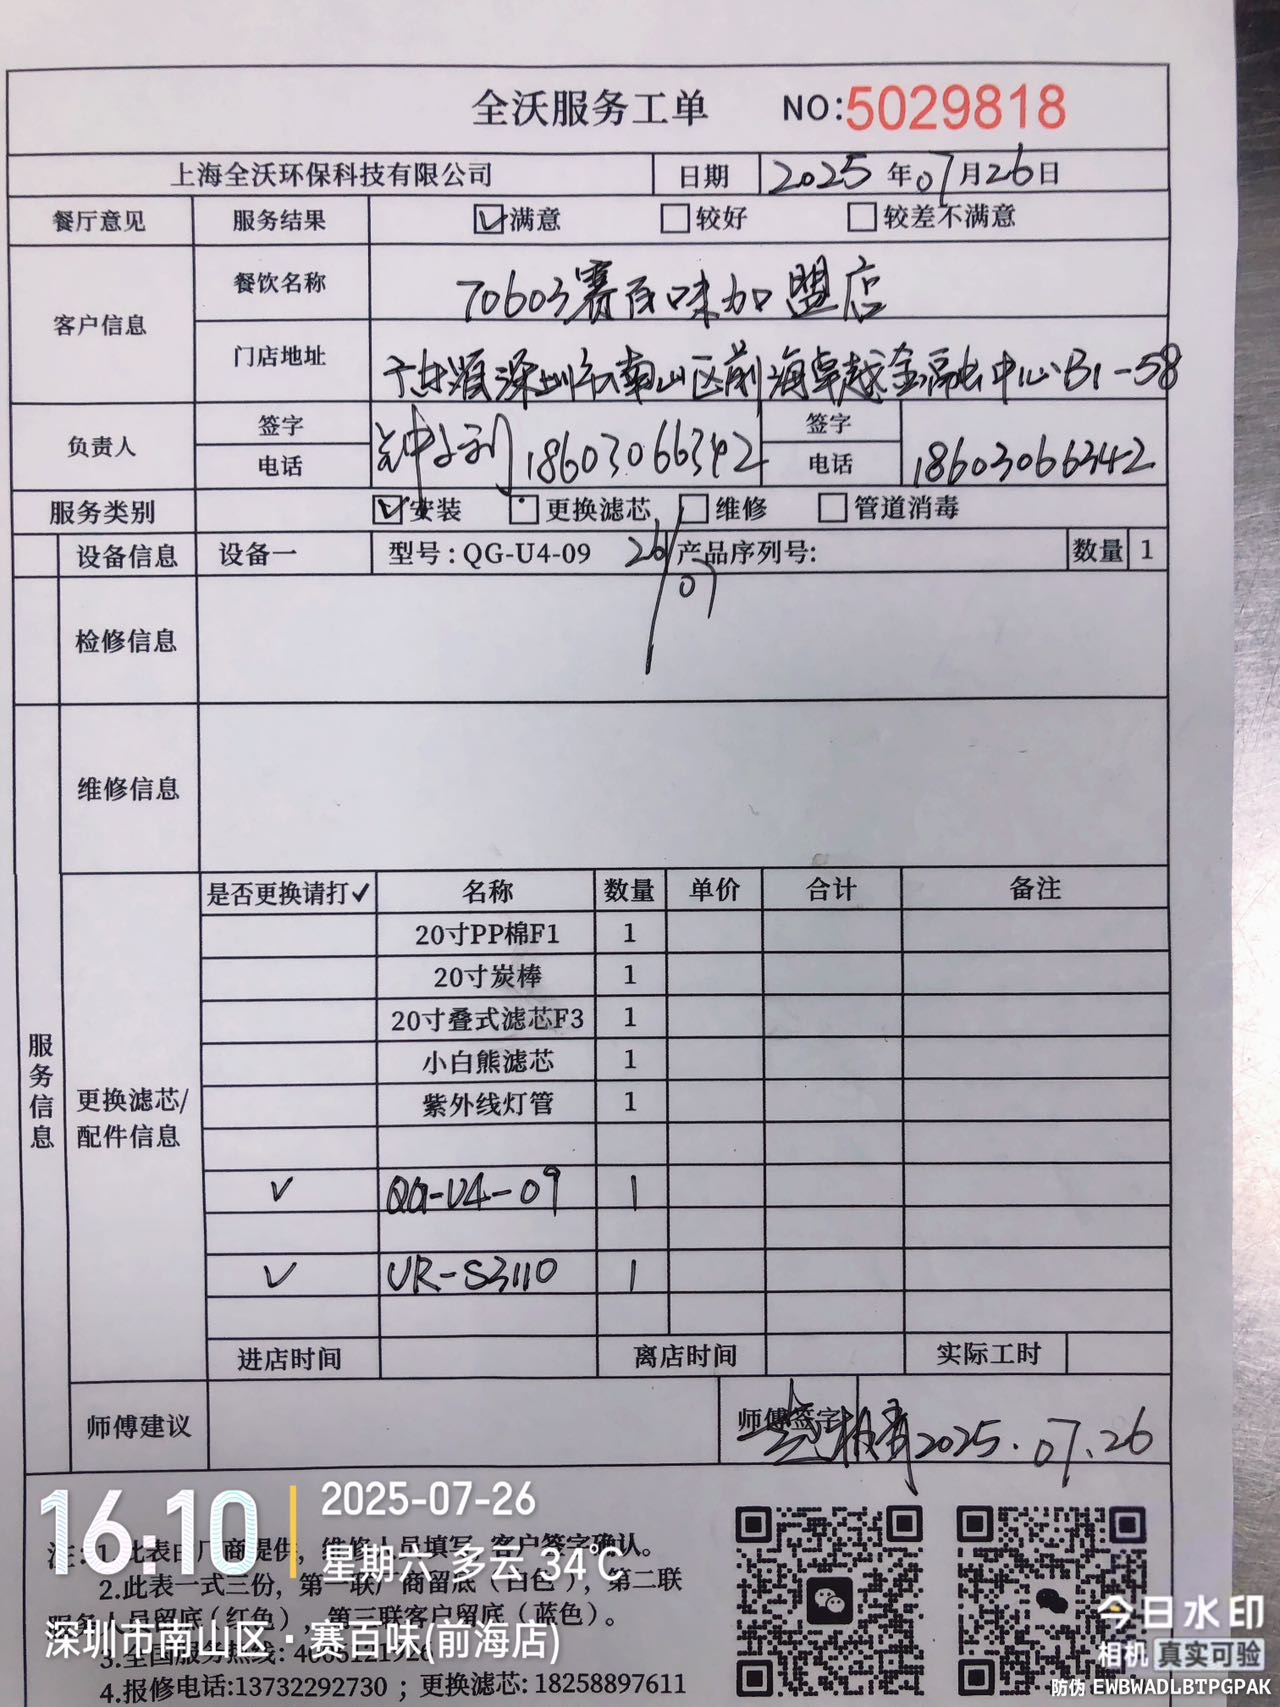 全沃服务工单 NO:5029818
上海全沃环保科技有限公司 日期 2025年07月26日
餐厅意见 服务结果 ☑满意 □较好 □较差不满意
客户信息 餐饮名称 70603赛百味加盟店
门店地址 深圳市南山区前海卓越金融中心B1-58
负责人 签字 签字
电话 18603066342 电话 18603066342
服务类别 ☑安装 □更换滤芯 □维修 □管道消毒
设备信息 设备一 型号:QG-U4-09 产品序列号: 数量 1
26/07
检修信息
维修信息
服务信息
更换滤芯/配件信息
是否更换请打✓ 名称 数量 单价 合计 备注
20寸PP棉F1 1
20寸炭棒 1
20寸叠式滤芯F3 1
小白熊滤芯 1
紫外线灯管 1
✓ QG-U4-09 1
✓ UR-S3110 1
进店时间 离店时间 实际工时
师傅建议 师傅签字 2025.07.26
注:1.此表由厂商提供,维修人员填写,客户签字确认。
2.此表一式三份,第一联厂商留底(白色),第二联
服务人员留底(红色),第三联客户留底(蓝色)。
3.全国服务热线:
4.报修电话:13732292730 ;更换滤芯:18258897611
16:10 2025-07-26
星期六 多云 34℃
深圳市南山区·赛百味(前海店)
今日水印
相机 真实可验
防伪 EWBWADLBTPGPAK